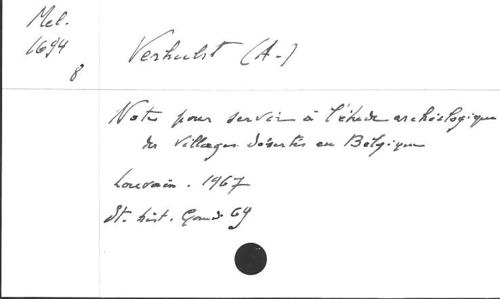 Mel.
1694
8
Verhulst (A-)
Notes pour servir à l'étude archéologique
des villages désertés en Belgique
Louvain. 1967
St. hist. Gand 69